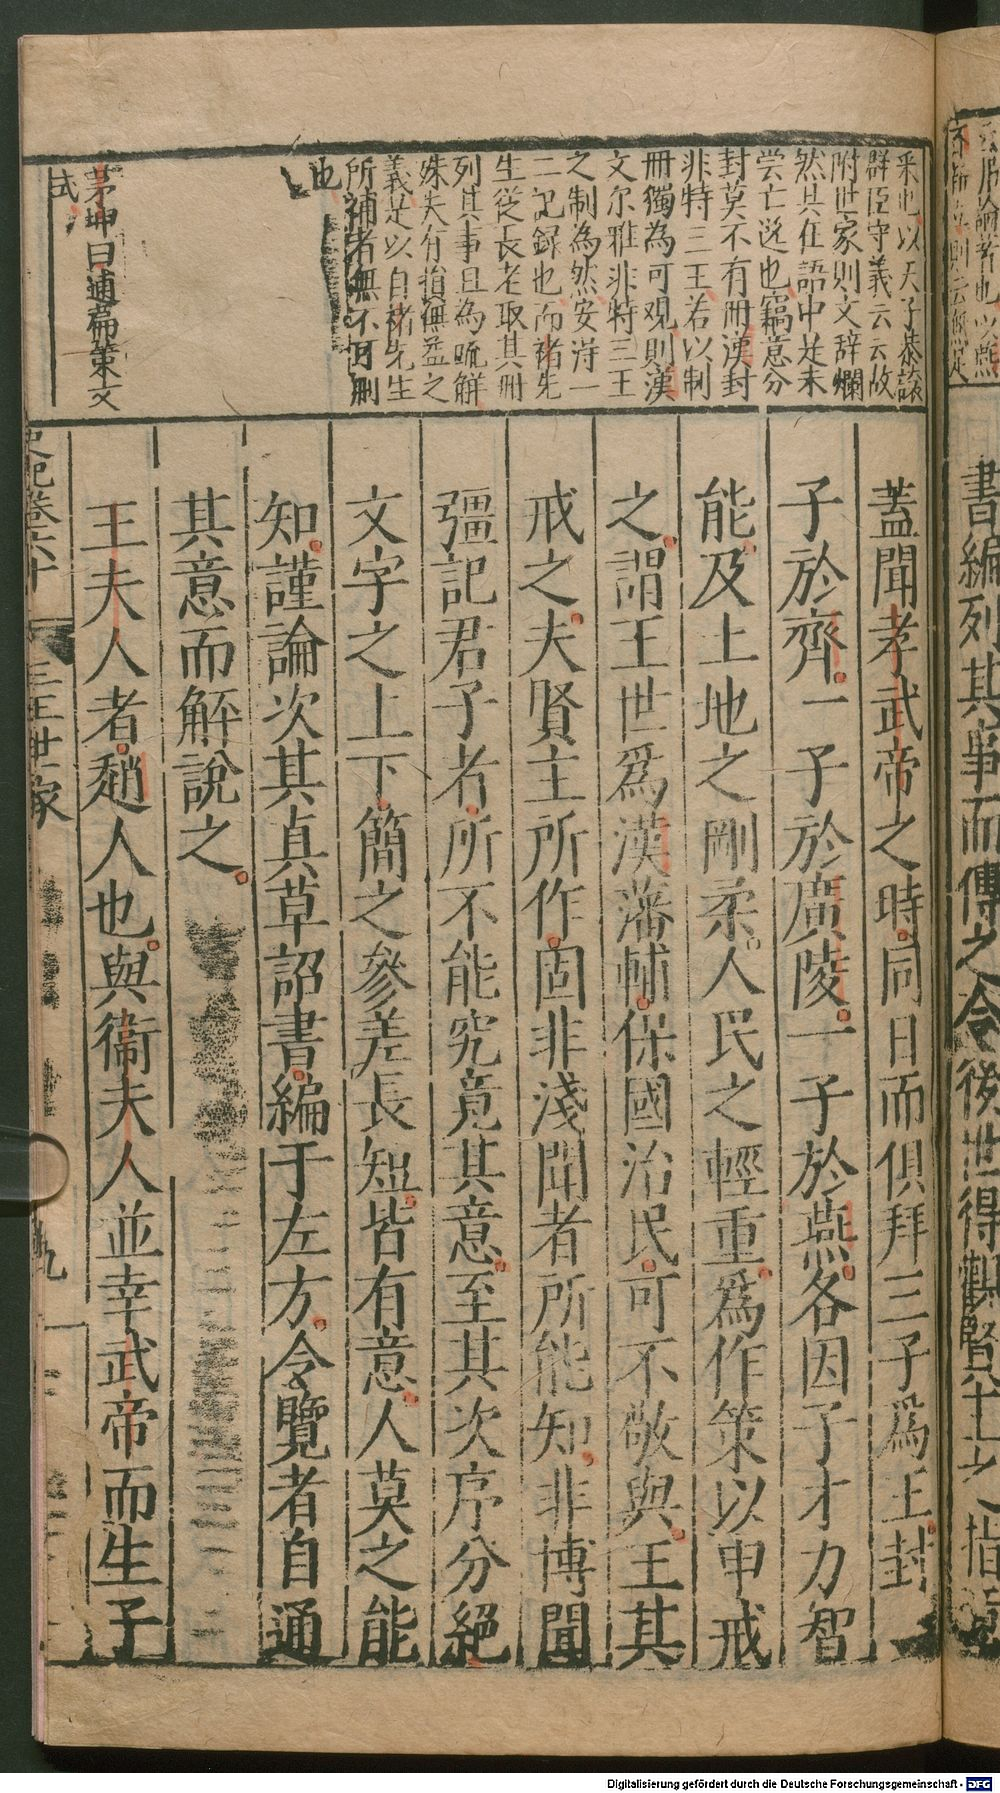 書編列其事而傳之令後世得觀賢主之指意
采也以天子恭讓
群臣守義云云故
附世家則文辭爛
然其在語中是未
嘗亡逸也竊意分
封莫不有冊漢封
非特三王若以制
冊獨為可觀則漢
文尔雅非特三王
之制為然安得一
二記録也而褚先
生從長老取其冊
列其事且為疏觧
殊失有損無益之
義足以自褚先生
所補者無不可刪
也
茅坤曰通篇策文
式
蓋聞孝武帝之時同日而俱拜三子爲王封
子於齊一子於廣陵一子於燕各因子才力智
能及土地之剛柔人民之輕重爲作策以申戒
之謂王世爲漢藩輔保國治民可不敬與王其
戒之夫賢主所作固非淺聞者所能知非博聞
彊記君子者所不能究竟其意至其次序分絕
文字之上下簡之參差長短皆有意人莫之能
知謹論次其真草詔書編于左方令覽者自通
其意而解說之
王夫人者趙人也與衞夫人並幸武帝而生子
史記卷六十 三王世家 九
Digitalisierung gefördert durch die Deutsche Forschungsgemeinschaft - DFG